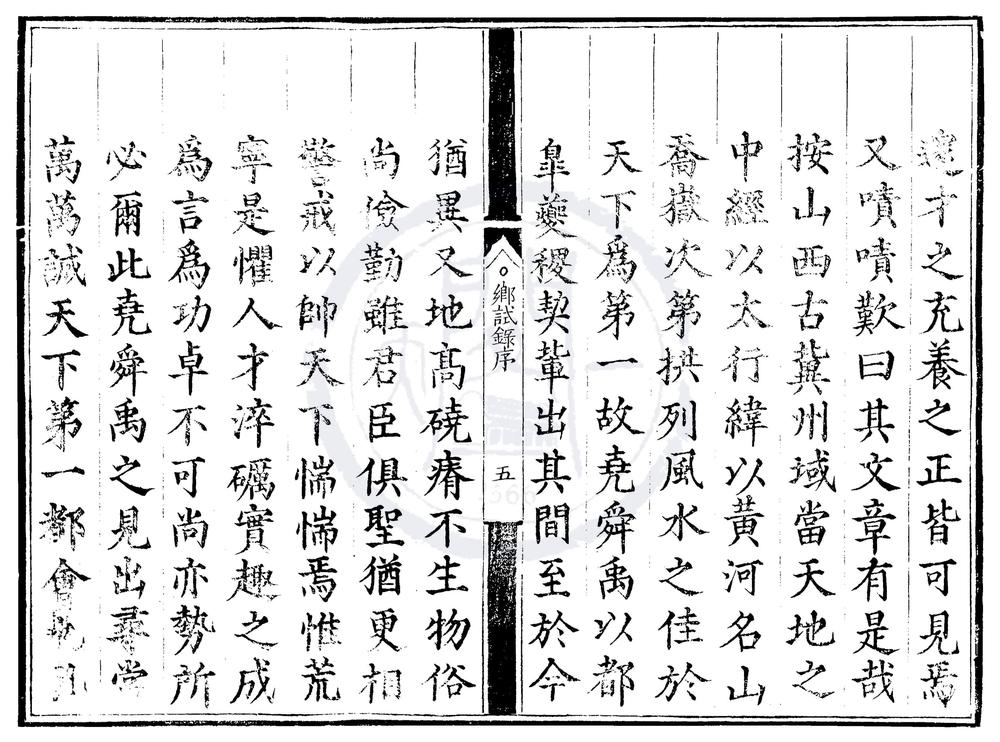 達才之充養之正皆可見焉
又嘖嘖歎曰其文章有是哉
按山西古冀州域當天地之
中經以太行緯以黃河名山
喬嶽次第拱列風水之佳於
天下爲第一故堯舜禹以都
臯夔稷契輩出其間至於今
鄉試錄序
五
猶異又地高磽瘠不生物俗
尚儉勤雖君臣俱聖猶更相
警戒以帥天下惴惴焉惟荒
寧是懼人才淬礪實趣之成
爲言爲功卓不可尚亦勢所
必爾此堯舜禹之見出尋常
萬萬誠天下第一都會